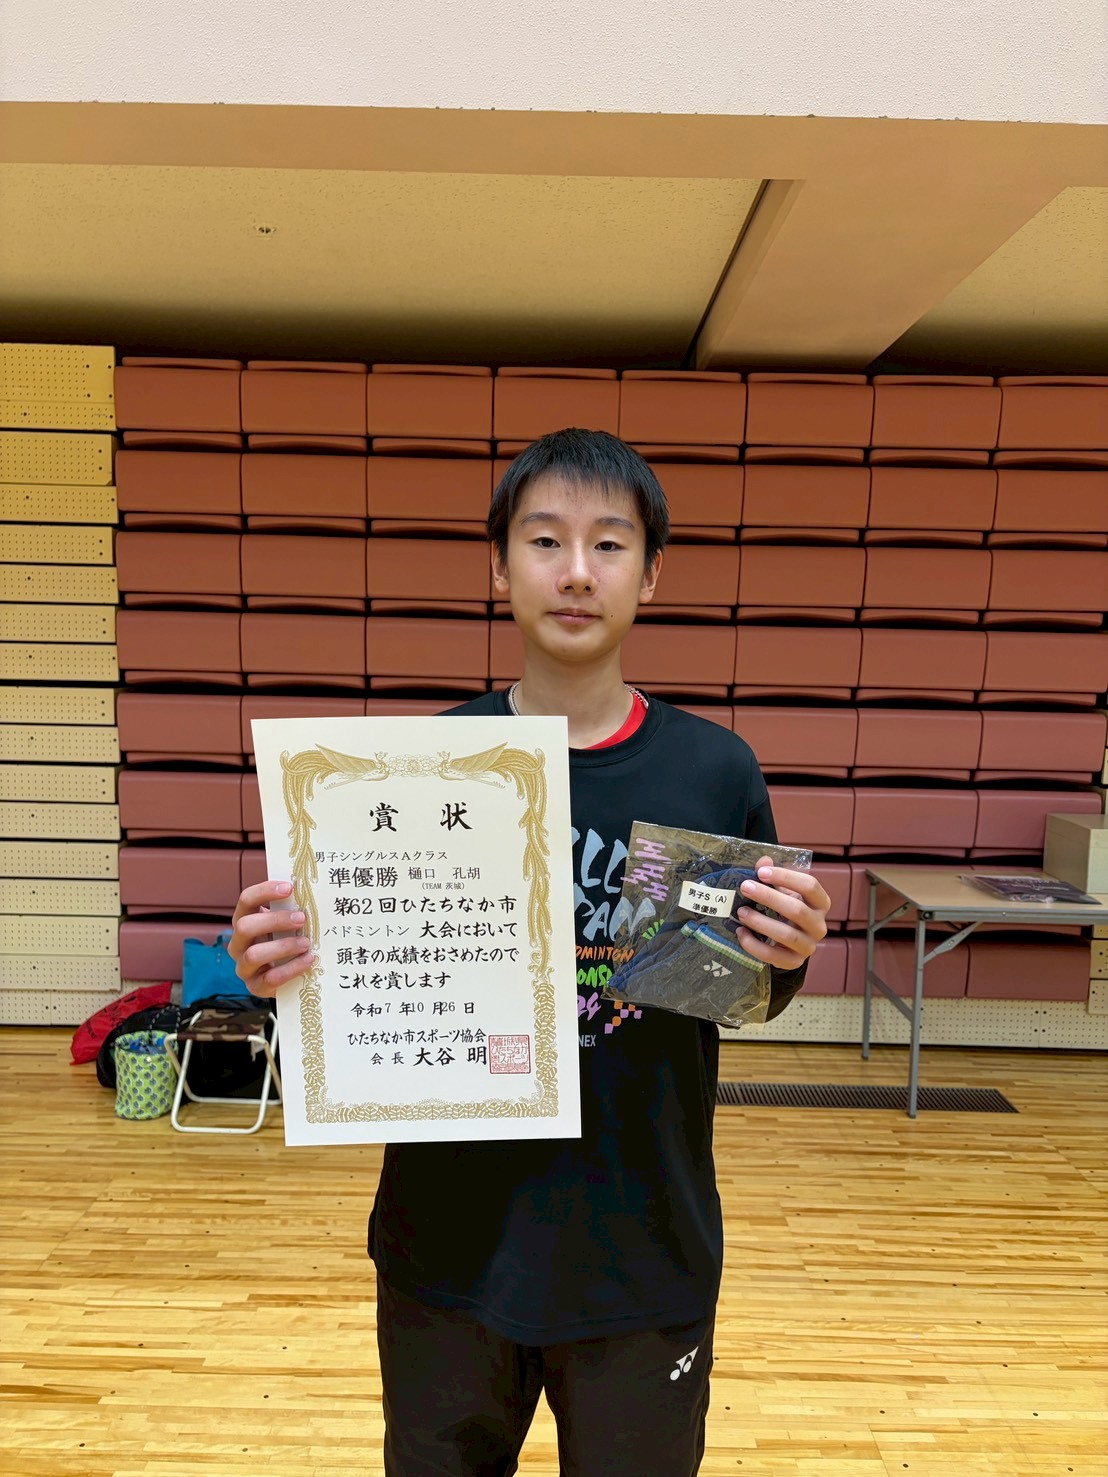 賞 状
男子シングルスAクラス
準優勝 樋口 孔胡
(TEAM 茨城)
第62回ひたちなか市
バドミントン 大会において
頭書の成績をおさめたので
これを賞します
令和7年10月26日
ひたちなか市スポーツ協会
会 長 大谷 明
男子S(A)
準優勝